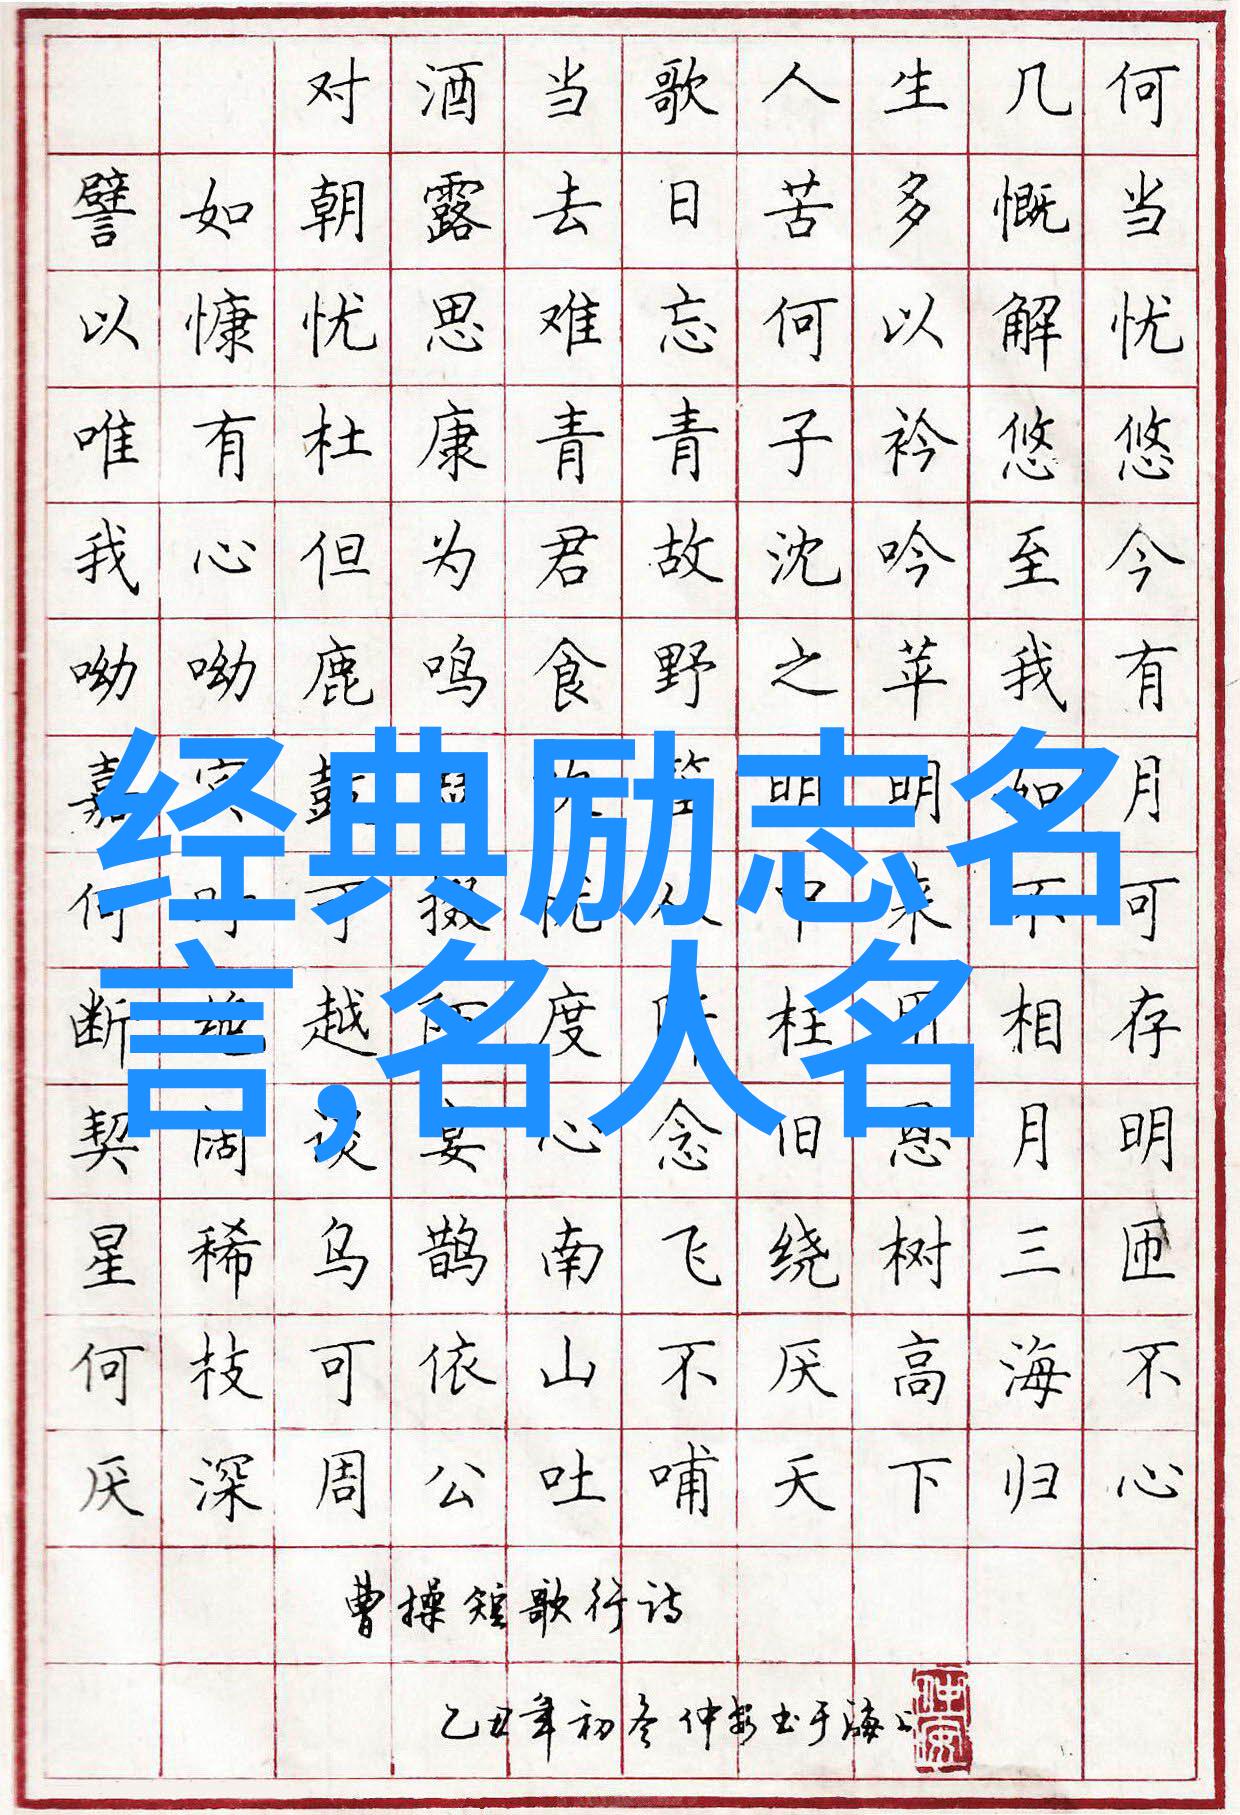 对酒当歌人生几何
譬如朝露去日苦多慨当
以慷忧思难忘何以解忧
唯有杜康青青子衿悠悠
我心但为君故沈吟至今
呦呦鹿鸣食野之苹我有
嘉宾鼓瑟吹笙明明如月
经典励志名
何时可掇忧从中来不可
断绝越陌度阡枉用相存
言,名人名
契阔谈宴心念旧恩月明
星稀乌鹊南飞绕树三匝
何枝可依山不厌高海不
厌深周公吐哺天下归心
曹操短歌行诗
乙丑年初冬仲安书于海上
仲安